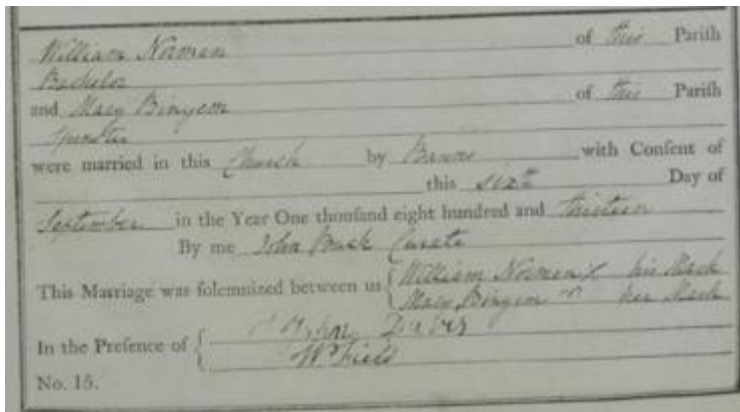 William Norman of this Parish
Bachelor
and Mary Binyem of this Parish
Spinster
were married in this Church by Banns with Consent of
this sixth Day of
September in the Year One thousand eight hundred and thirteen
By me John Buck Curate
This Marriage was solemnized between us { William Norman X his Mark
Mary Binyem her Mark
In the Presence of {
Wm Field
No. 15.